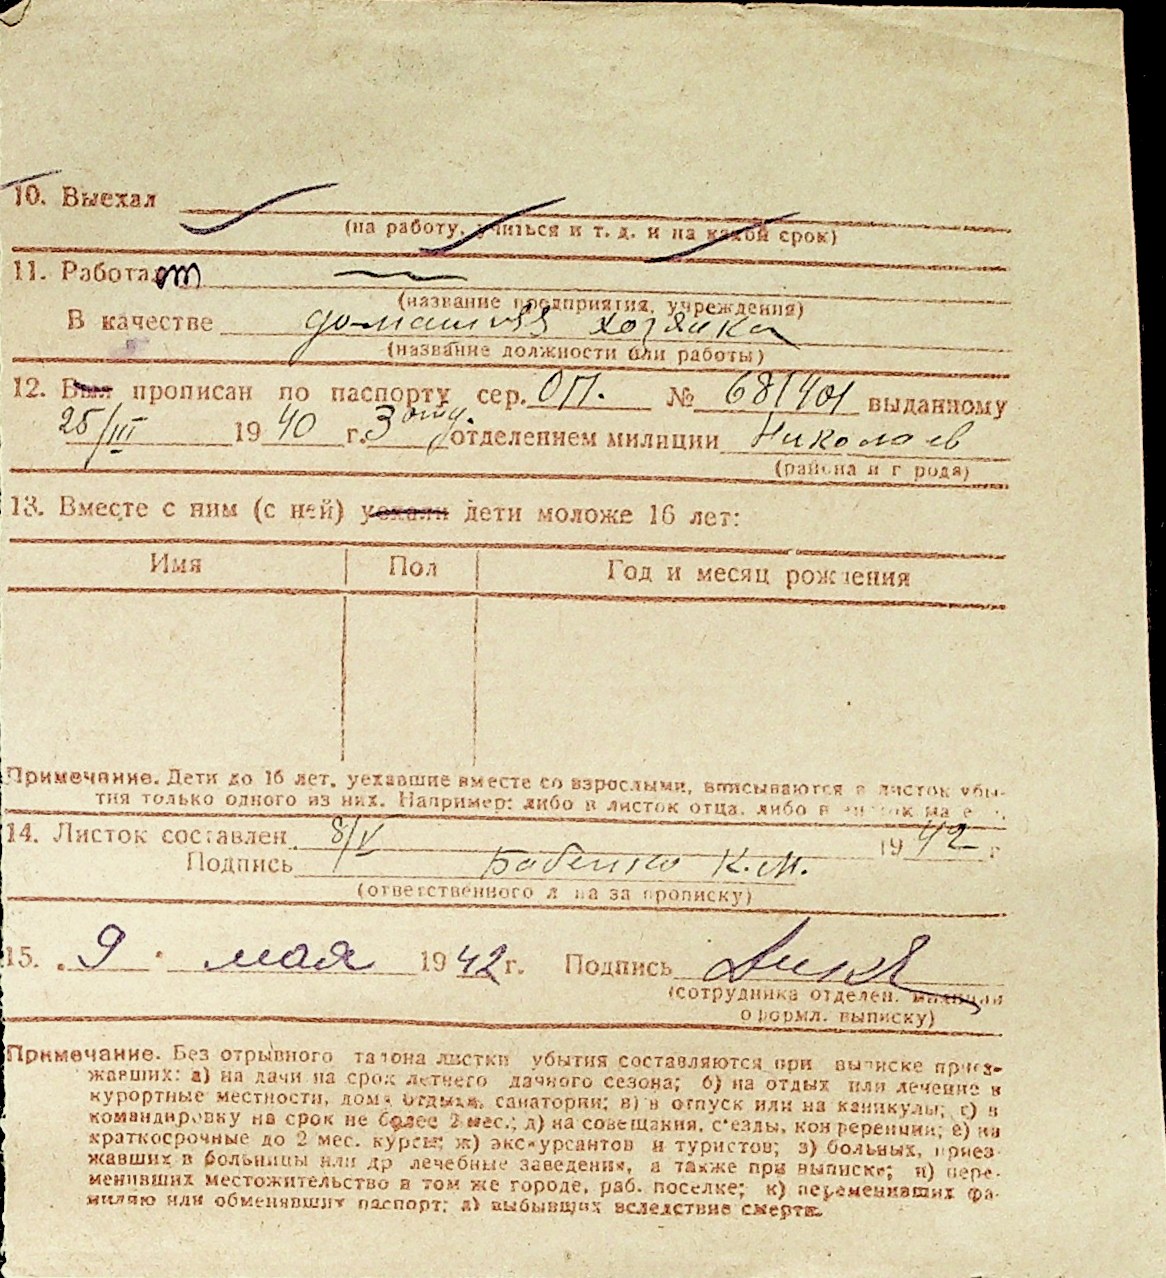 10. Выехал
(на работу, учиться и т. д. и на какой срок)
11. Работает
(название предприятия, учреждения)
В качестве домашняя хозяйка
(название должности или работы)
12. Был прописан по паспорту сер. ОП. № 681401 выданному
25/III 1940 г. 3 отд. отделением милиции Николаев
(района и г рода)
13. Вместе с ним (с ней) уехали дети моложе 16 лет:
Имя Пол Год и месяц рождения
Примечание. Дети до 16 лет, уехавшие вместе со взрослыми, вписываются в листок убы-
тия только одного из них. Например: либо в листок отца, либо в
14. Листок составлен 8/V 1942 г
Подпись Бабенко К.М.
(ответственного л на за прописку)
15. 9 мая 1942 г. Подпись
(сотрудника отделен. милиции
оформл. выписку)
Примечание. Без отрывного талона листки убытия составляются при выписке приез-
жавших: а) на дачи на срок летнего дачного сезона; б) на отдых или лечение в
курортные местности, дома отдыха, санатории; в) в отпуск или на каникулы; г) в
командировку на срок не более 2 мес.; д) на совещания, с'езды, конференции; е) на
краткосрочные до 2 мес. курсы; ж) экскурсантов и туристов; з) больных, приез-
жавших в больницы или др лечебные заведения, а также при выписке; и) пере-
менивших местожительство в том же городе, раб. поселке; к) переменивших фа-
милию или обменявших паспорт; л) выбывших вследствие смерти.